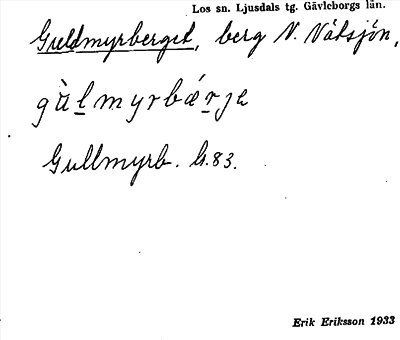 Los sn. Ljusdals tg. Gävleborgs län.
Guldmyrberget, berg N. Våtsjön,
gùlmyrbǽrje
Gullmyrb. G.83.
Erik Eriksson 1933